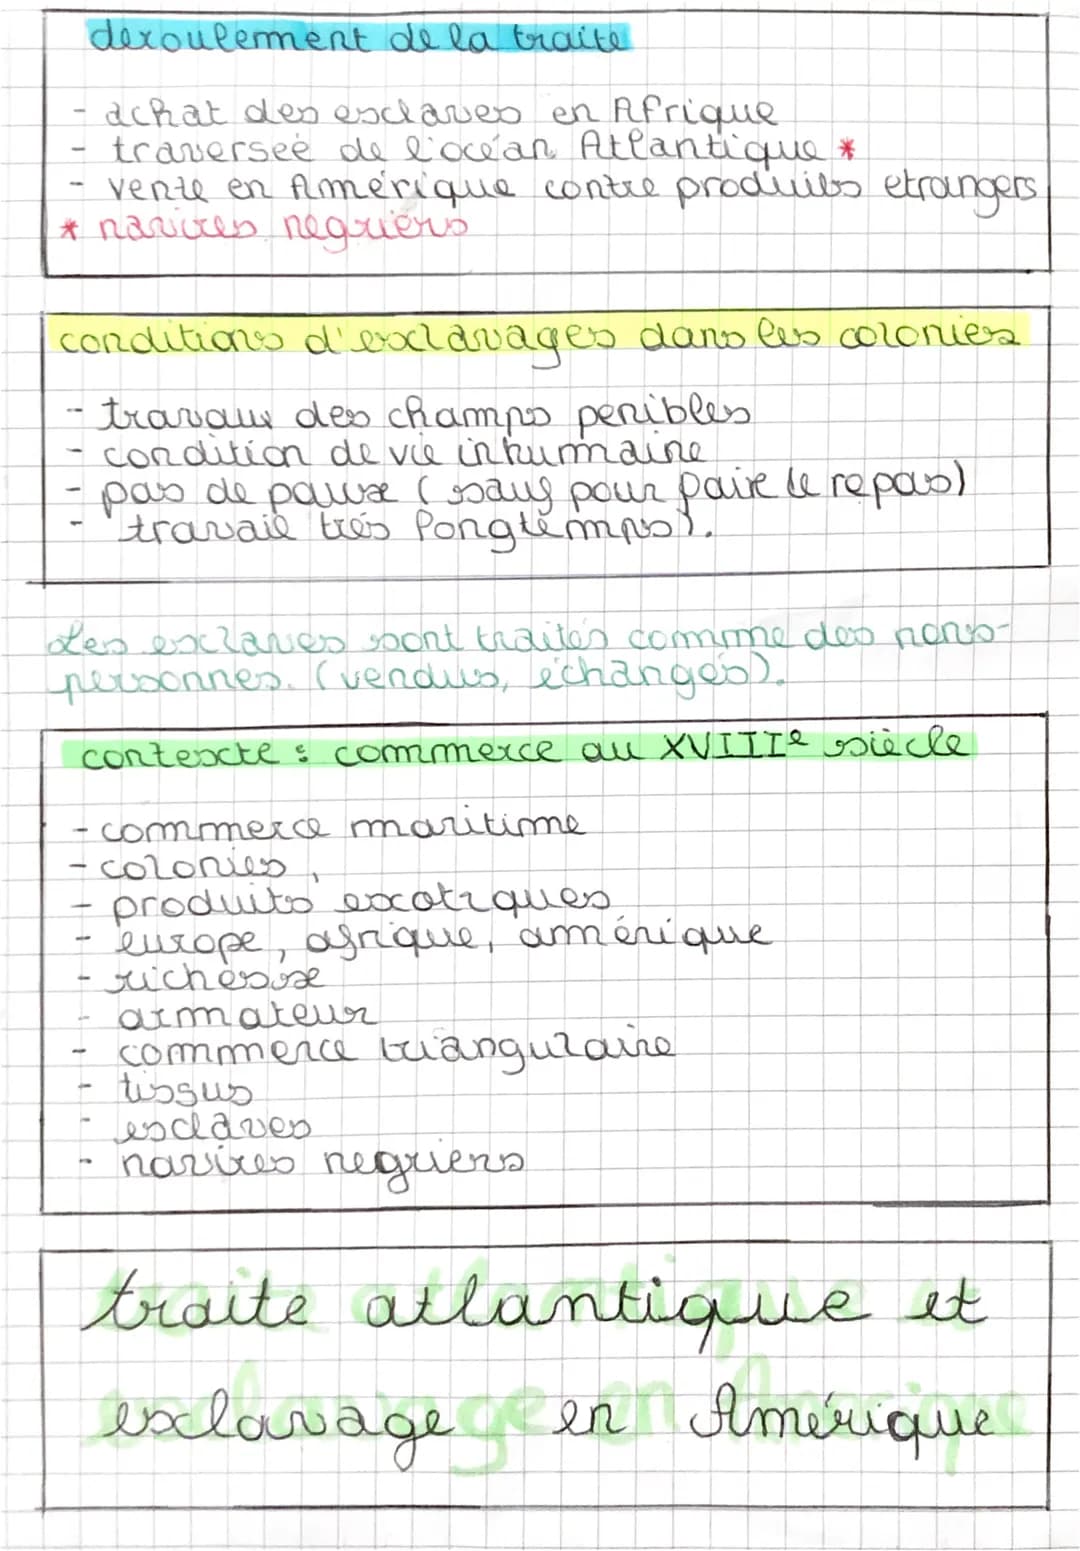 deroulement de la traite
- achat des esclaves en Afrique
- traverseé de l'océan Atlantique *
- vente en Amérique contre produits etrangers
* navires negriers
conditions d'esclavages dans les colonies
- travaux des champs penibles
- condition de vie inhumaine
- pas de pause (sauf pour faire le repas)
- travail très longtemps).
Les esclaves sont traités comme des nons-
personnes. (vendus, échangés).
contexte : commerce au XVIIIe siècle
- commerce maritime
- colonies,
- produits exotiques
- europe, afrique, amérique
- richesse
- armateur
- commerce triangulaire
- tissus
- esclaves
- navires negriers
traite atlantique et
esclavage en Amérique